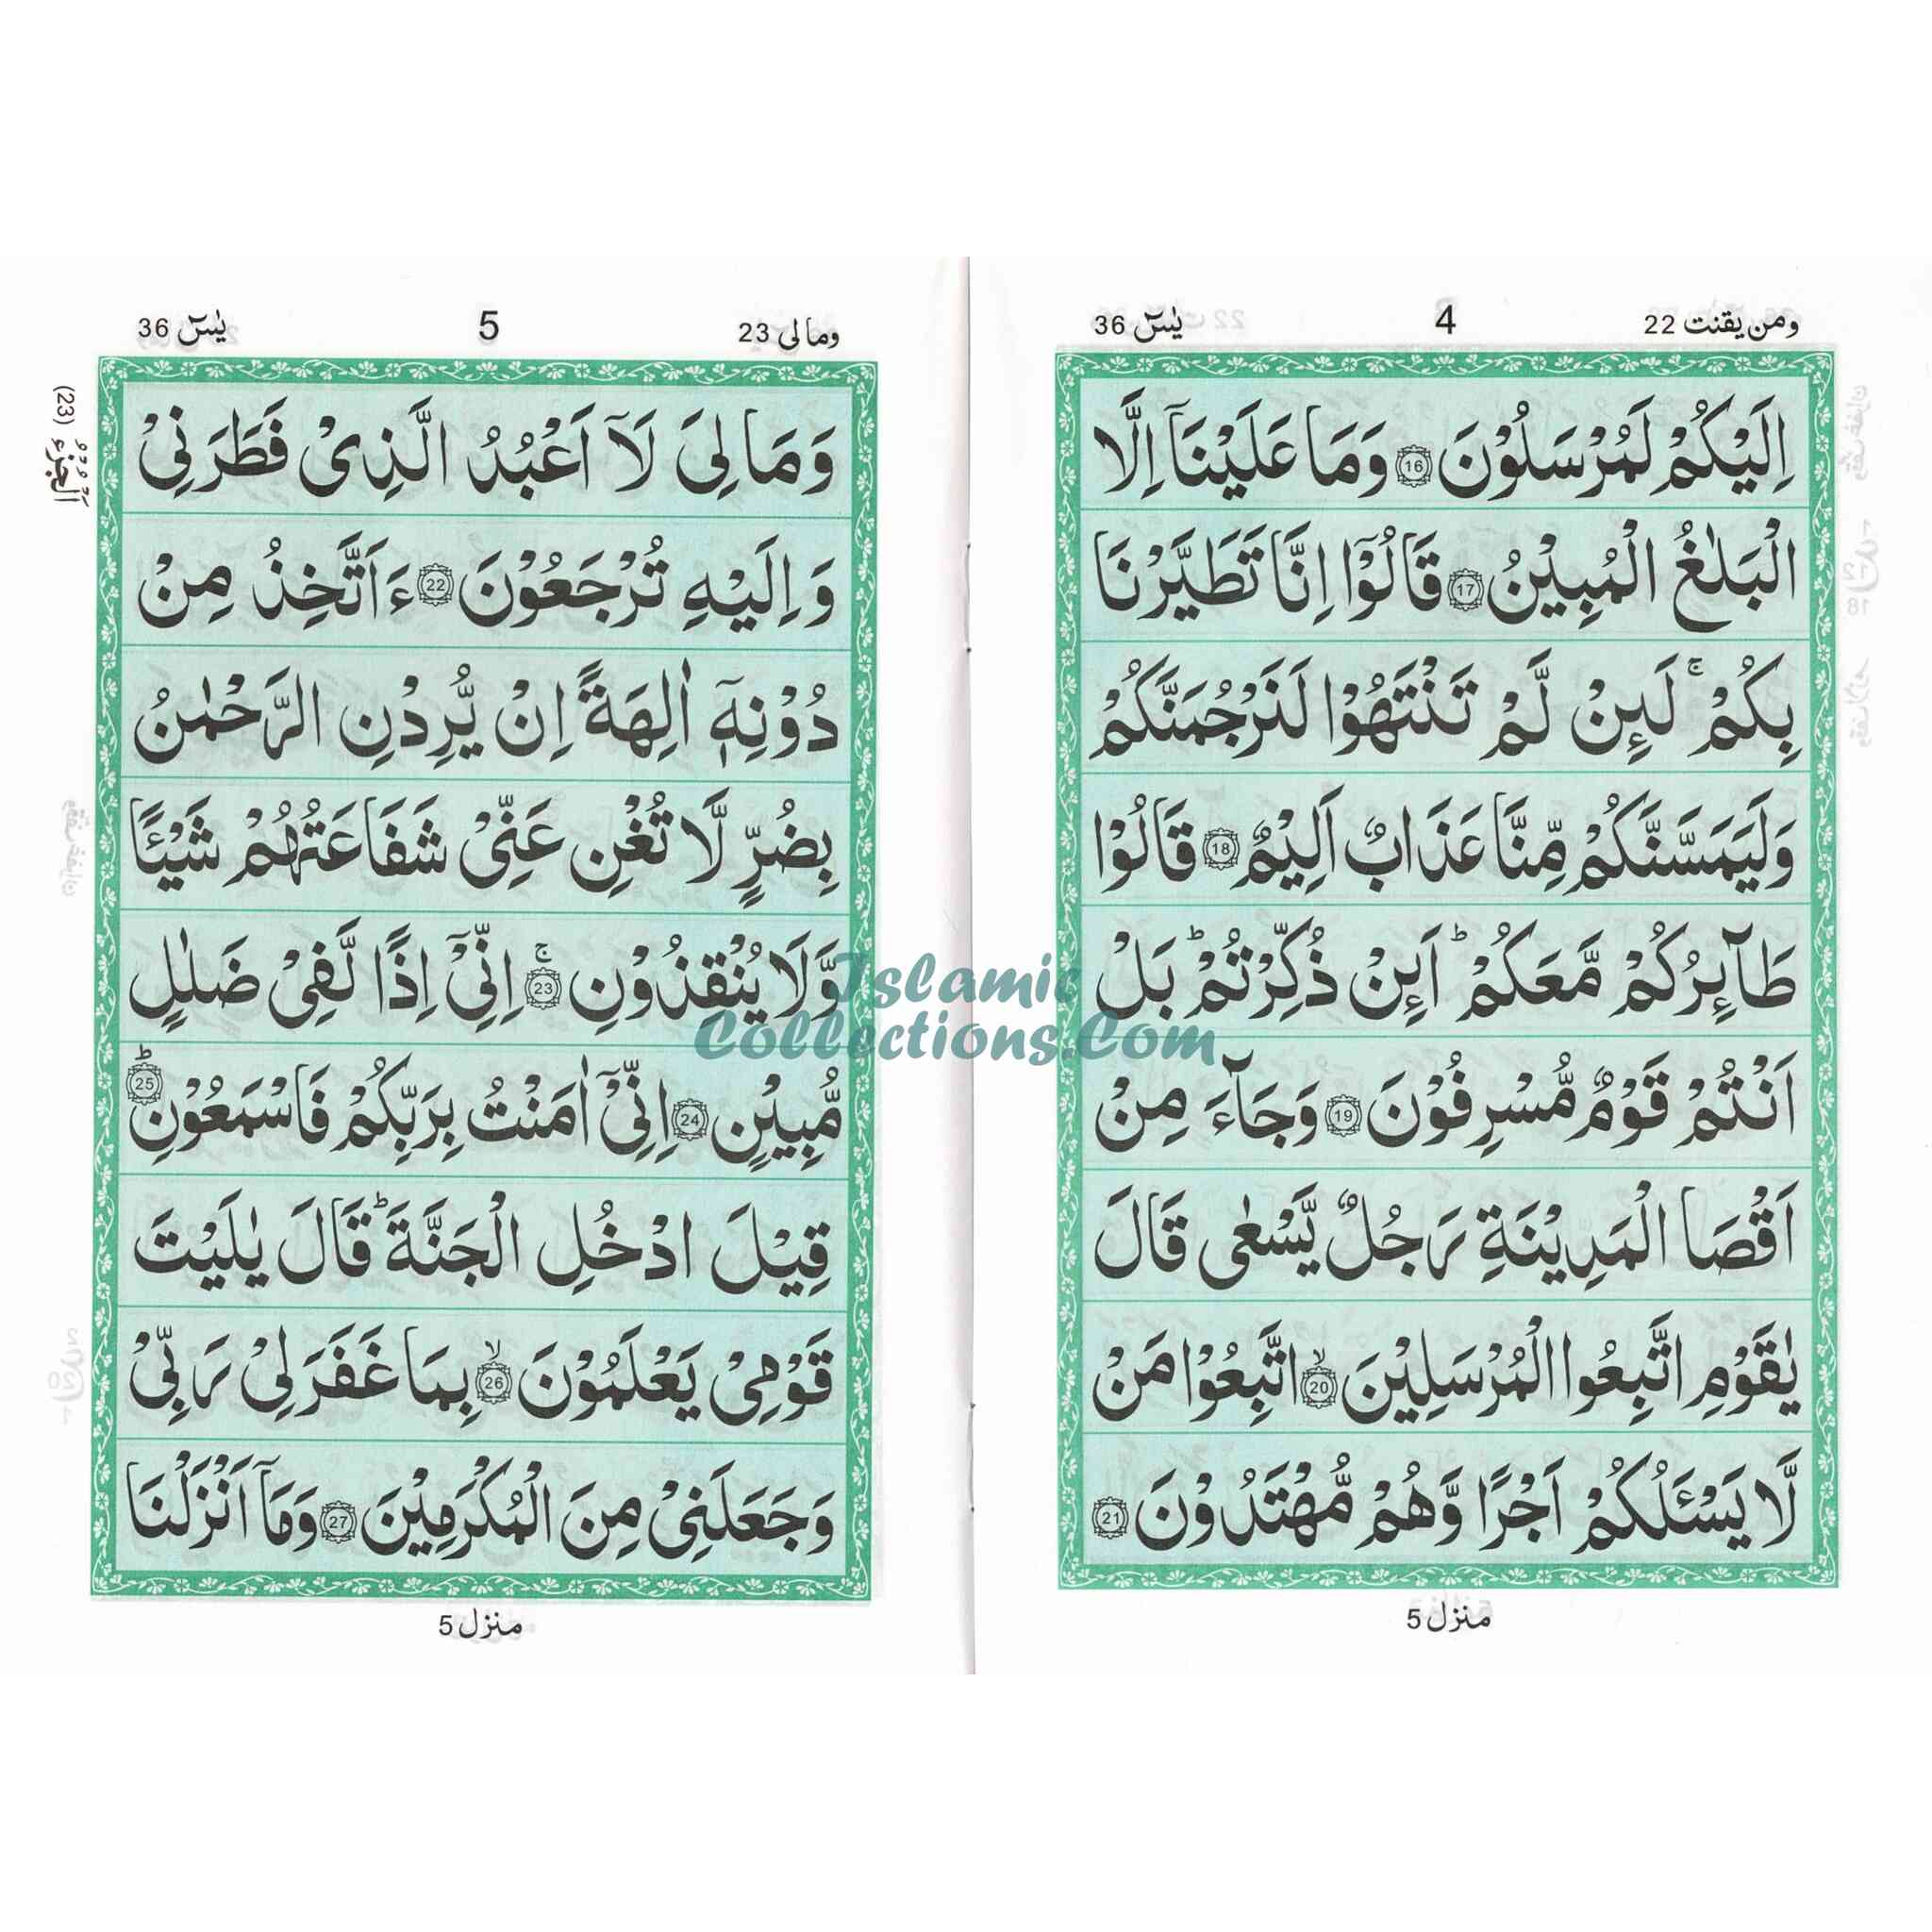 ومن یقنت 22
4
یٰسٓ 36
اِلَیْكُمْ لَمُرْسَلُوْنَ 16 وَمَا عَلَیْنَاۤ اِلَّا
الْبَلٰغُ الْمُبِیْنُ 17 قَالُوْۤا اِنَّا تَطَیَّرْنَا
بِكُمْ ۚ لَىِٕنْ لَّمْ تَنْتَهُوْا لَنَرْجُمَنَّكُمْ
وَلَیَمَسَّنَّكُمْ مِّنَّا عَذَابٌ اَلِیْمٌ 18 قَالُوْا
طَآىِٕرُكُمْ مَّعَكُمْ ؕ اَىِٕنْ ذُكِّرْتُمْ ؕ بَلْ
اَنْتُمْ قَوْمٌ مُّسْرِفُوْنَ 19 وَجَآءَ مِنْ
اَقْصَا الْمَدِیْنَةِ رَجُلٌ یَّسْعٰی قَالَ
یٰقَوْمِ اتَّبِعُوا الْمُرْسَلِیْنَ 20 ۙ اتَّبِعُوْا مَنْ
لَّا یَسْـَٔلُكُمْ اَجْرًا وَّهُمْ مُّهْتَدُوْنَ 21
منزل 5
وما لی 23
5
یٰسٓ 36
اَلْجُزْءُ (23)
وَمَا لِیَ لَاۤ اَعْبُدُ الَّذِیْ فَطَرَنِیْ
وَاِلَیْهِ تُرْجَعُوْنَ 22 ءَاَتَّخِذُ مِنْ
دُوْنِهٖۤ اٰلِهَةً اِنْ یُّرِدْنِ الرَّحْمٰنُ
بِضُرٍّ لَّا تُغْنِ عَنِّیْ شَفَاعَتُهُمْ شَیْـًٔا
وَّلَا یُنْقِذُوْنِ 23 ۚ اِنِّیْۤ اِذًا لَّفِیْ ضَلٰلٍ
مُّبِیْنٍ 24 اِنِّیْۤ اٰمَنْتُ بِرَبِّكُمْ فَاسْمَعُوْنِ 25 ؕ
قِیْلَ ادْخُلِ الْجَنَّةَ ؕ قَالَ یٰلَیْتَ
قَوْمِیْ یَعْلَمُوْنَ 26 ۙ بِمَا غَفَرَ لِیْ رَبِّیْ
وَجَعَلَنِیْ مِنَ الْمُكْرَمِیْنَ 27 وَمَاۤ اَنْزَلْنَا
منزل 5
Islamic
Collections.Com